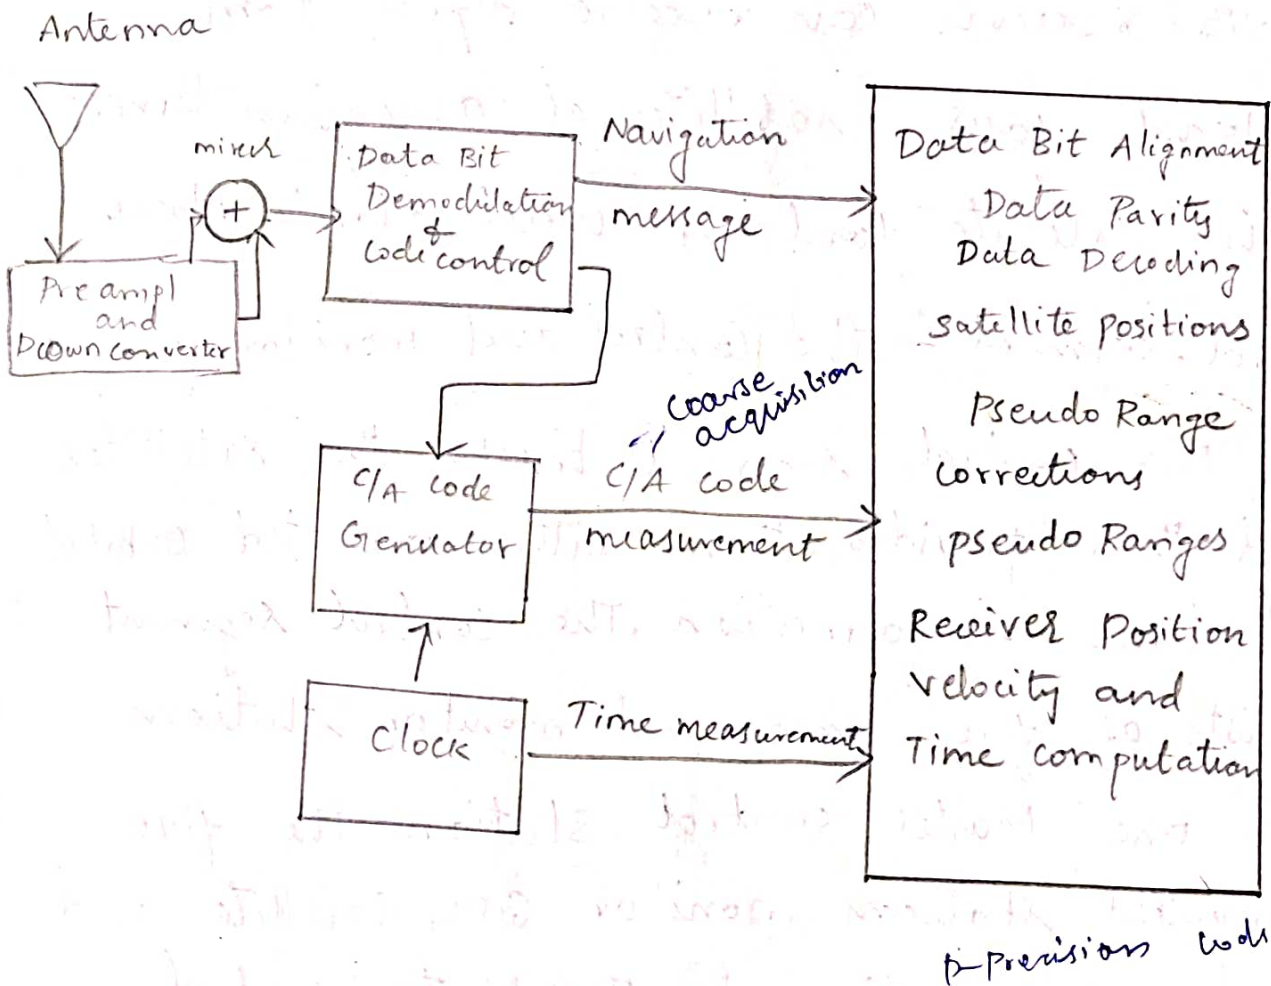 Antenna
mixer
+
Preampl
and
Down converter
Data Bit
Demodulation
&
Code control
Navigation
message
C/A code
Generator
Coarse
acquisition
C/A code
measurement
Clock
Time measurement
Data Bit Alignment
Data Parity
Data Decoding
Satellite positions
Pseudo Range
corrections
pseudo Ranges
Receiver Position
velocity and
Time computation
P-Precision code